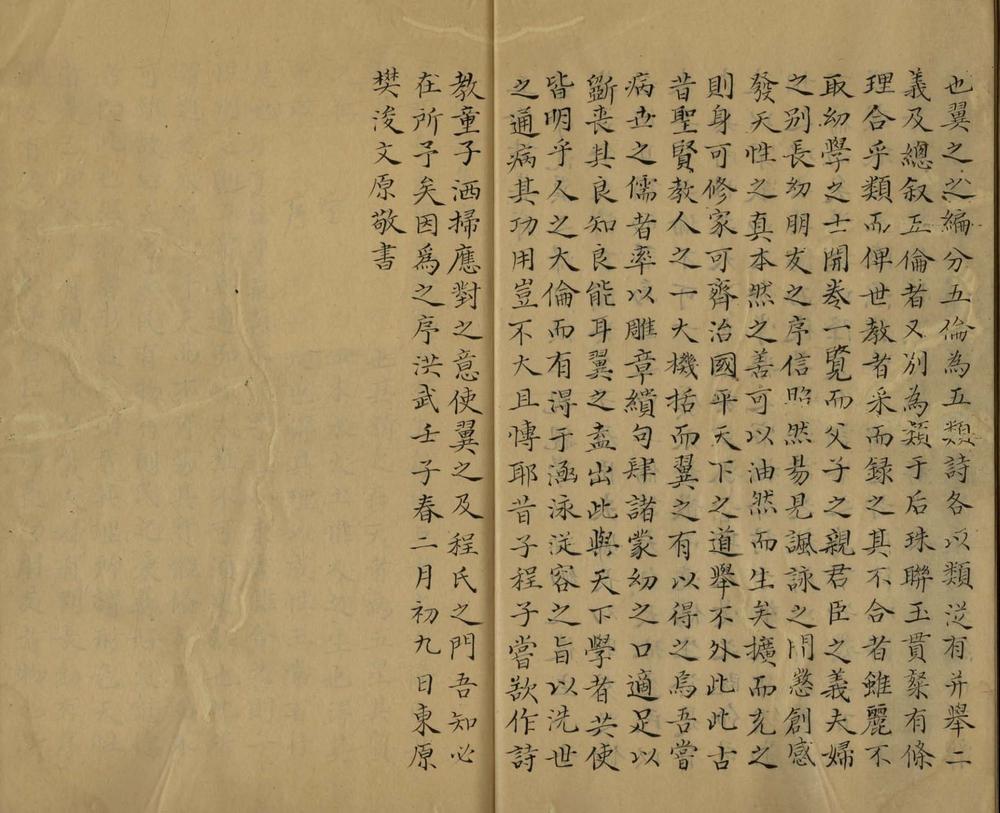 也翼之之編分五倫為五類詩各以類從有并舉二
義及總叙五倫者又別為類于后珠聯玉貫粲有條
理合乎類而俾世教者采而録之其不合者雖麗不
取幼學之士開卷一覽而父子之親君臣之義夫婦
之別長幼朋友之序信昭然易見諷詠之間懲創感
發天性之真本然之善可以油然而生矣擴而充之
則身可修家可齊治國平天下之道舉不外此此古
昔聖賢教人之一大機括而翼之有以得之焉吾嘗
病世之儒者率以雕章繢句肆諸蒙幼之口適足以
斵丧其良知良能耳翼之盍出此與天下學者共使
皆明乎人之大倫而有得于涵泳從容之旨以洗世
之通病其功用豈不大且愽耶昔子程子嘗欲作詩
教童子洒掃應對之意使翼之及程氏之門吾知必
在所予矣因爲之序洪武壬子春二月初九日東原
樊浚文原敬書